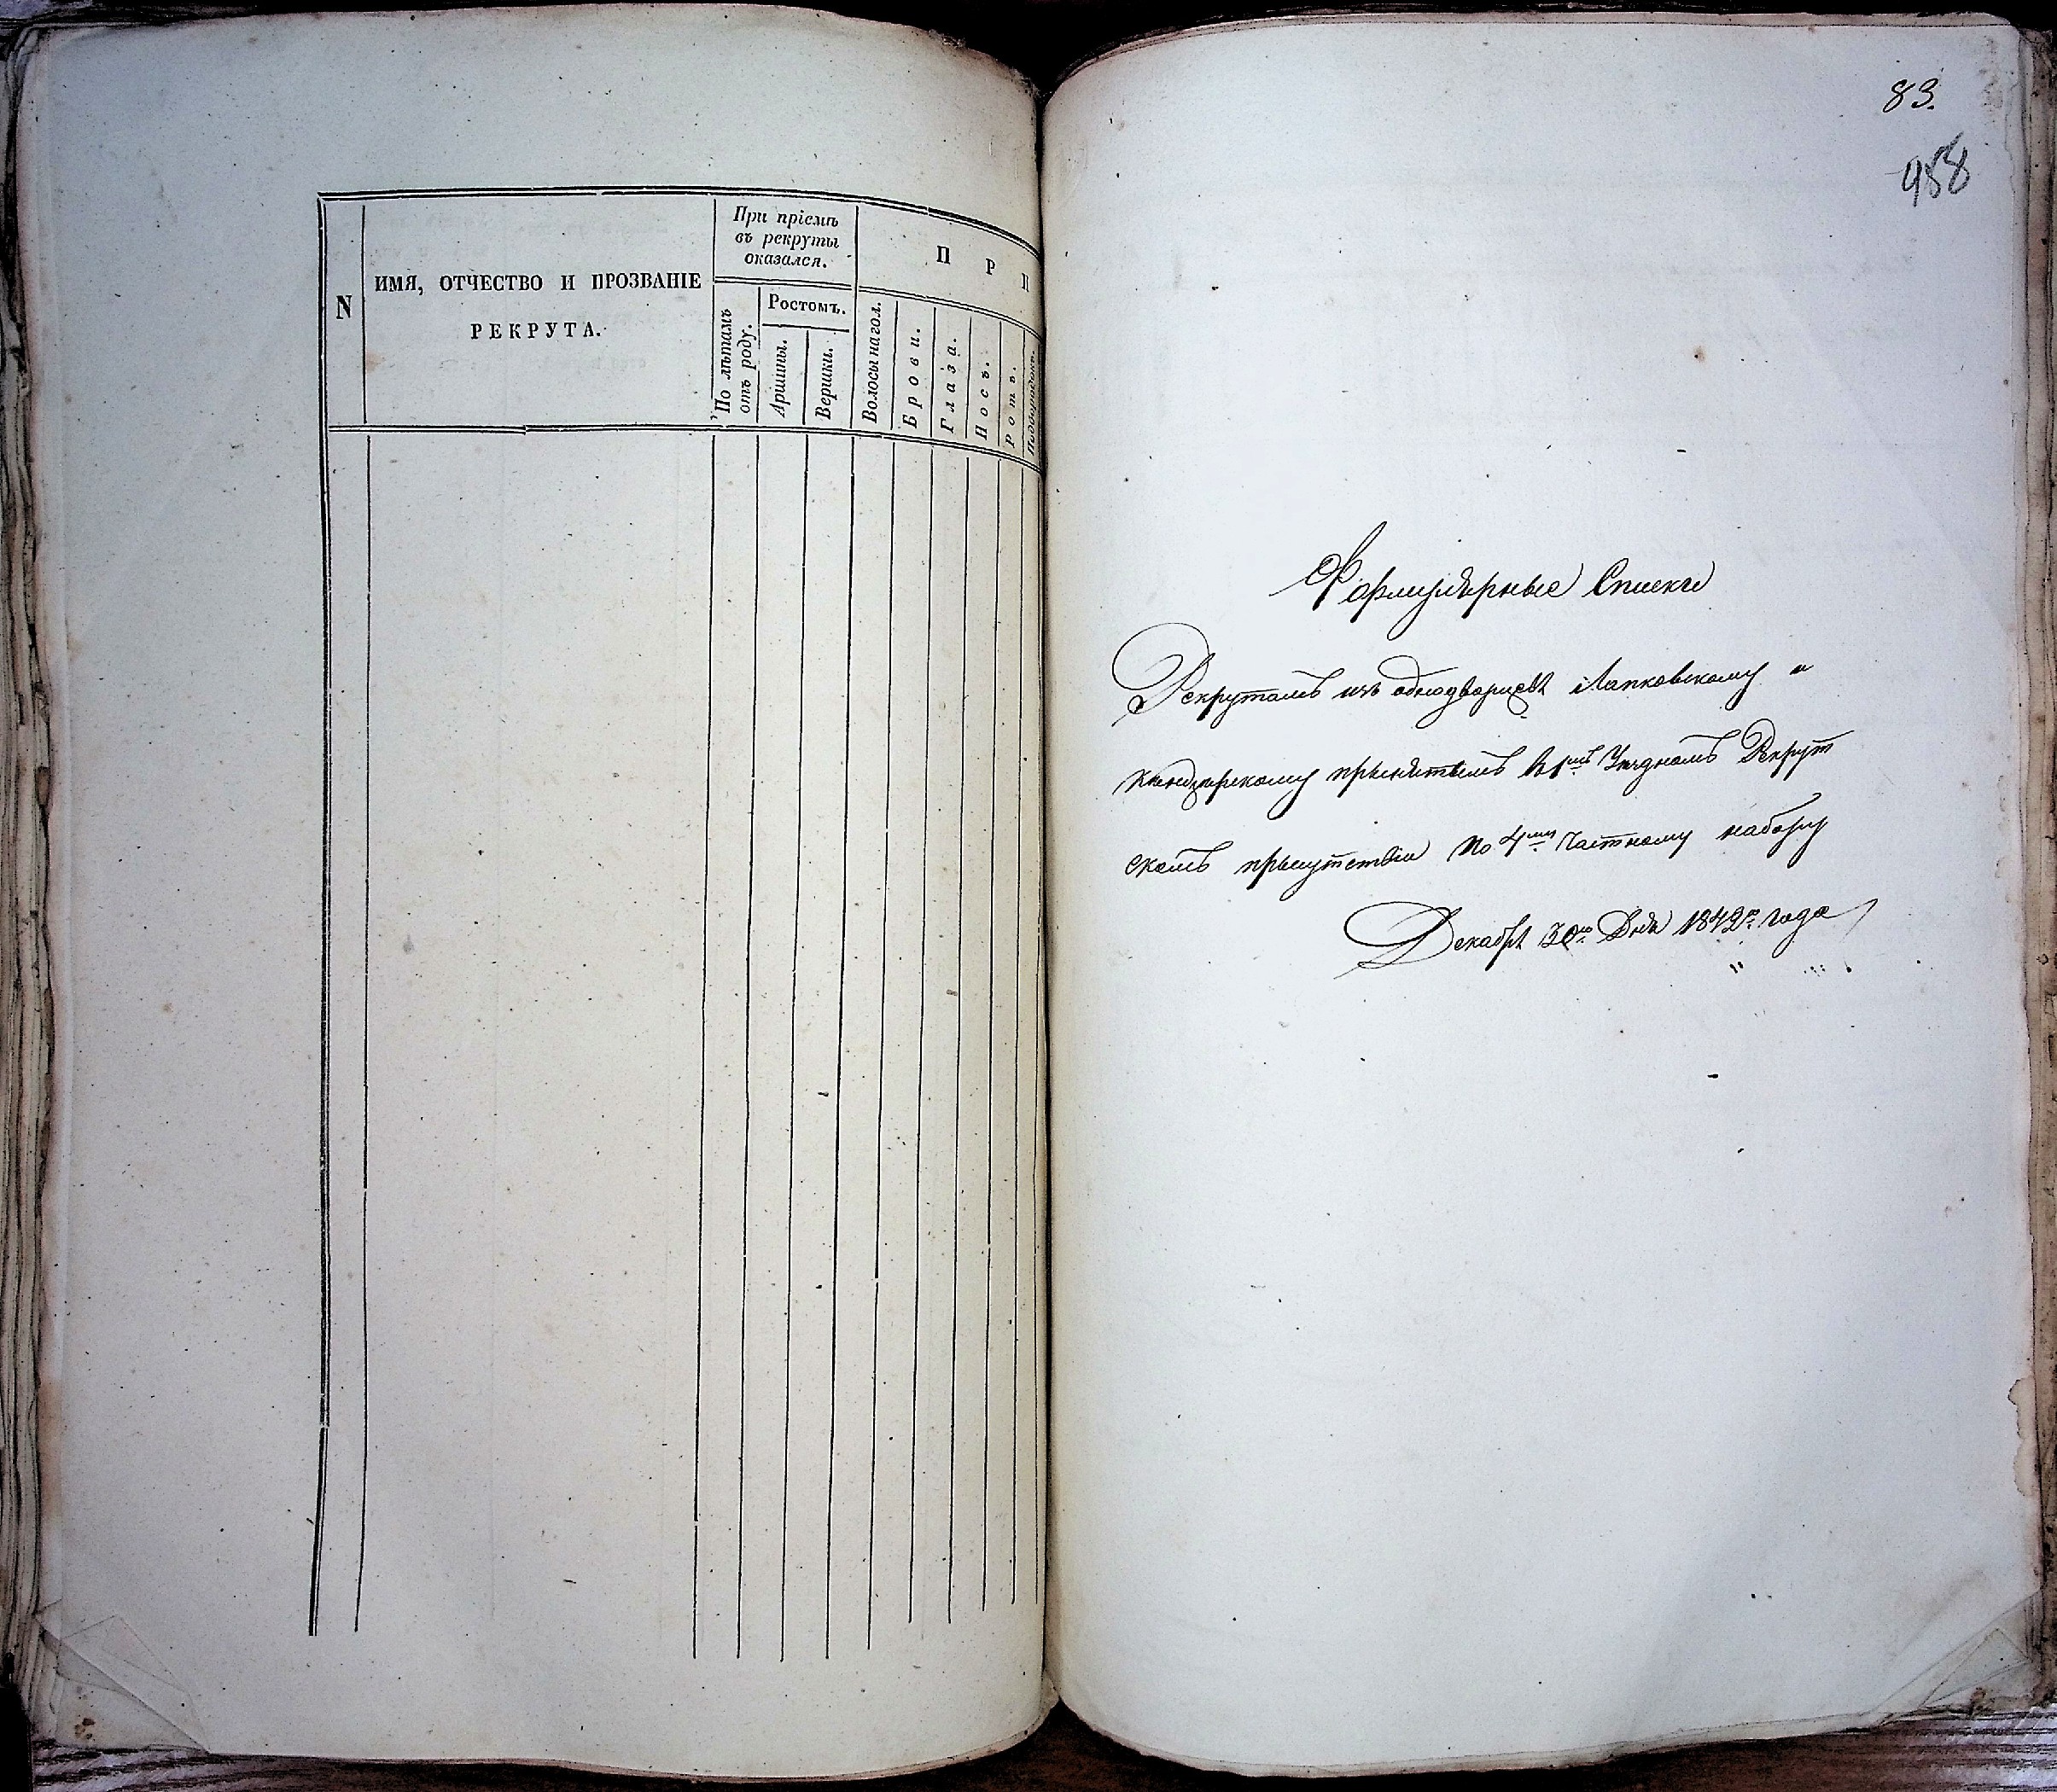 N
ИМЯ, ОТЧЕСТВО И ПРОЗВАНІЕ
РЕКРУТА.
При пріемѣ
въ рекруты
оказался.
По лѣтамъ
отъ роду.
Ростомъ.
Аршины.
Вершки.
П Р И
Волосы на гол.
Брови.
Глаза.
Носъ.
Ротъ.
Подбородокъ.
83.
958
Формулярные Списки
Рекрутамъ изъ однодворцевъ Лапковскому и
принятымъ в 1мъ Уѣздномъ Рекрут
скомъ присутствіи по 4му Частному набору
Декабря 30го Дня 1842го года